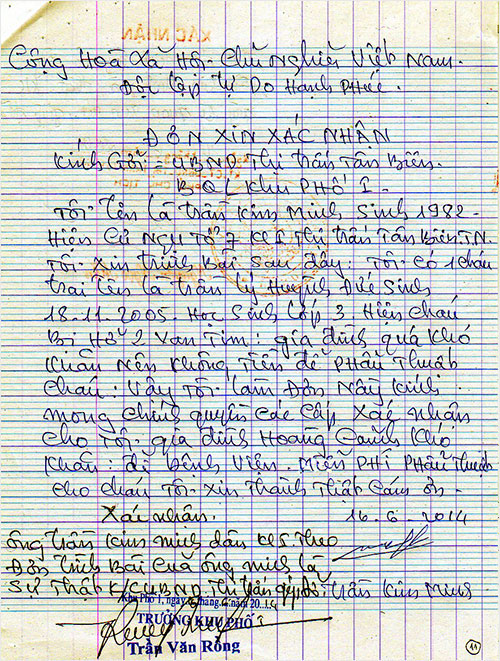 Cộng Hoà Xã Hội Chủ Nghĩa Việt Nam.
Độc lập Tự Do Hạnh Phúc.
ĐƠN XIN XÁC NHẬN
Kính Gởi: UBND Thị trấn Tân Biên.
BQL Khu PHỐ I.
Tôi tên là trần Kim Minh Sinh 1982
Hiện cư ngụ Tổ 7 KP1 Thị trấn Tân Biên. T.N
Tôi xin trình bài sau đây: Tôi có 1 cháu
trai tên là trần Lý Huỳnh Đức Sinh
18.11.2005. Học Sinh Lớp 3. Hiện cháu
Bị Hở 2 Van Tim: gia đình quá khó
khăn nên không tiền để phẫu thuật
cháu: Vậy tôi làm Đơn Nầy kính
mong chính quyền các cấp xác nhận
cho Tôi gia đình Hoàng cảnh khó
khăn: để bệnh viện. Miễn PHÍ Phẫu thuật
cho cháu Tôi xin Thành Thật Cám ơn.
Xác nhận. 16.6.2014
ông trần kim minh dân KP1 theo
Đơn trình bài của ông minh là
Sự thật K/C UBND Thị trấn giúp đỡ trần kim minh
Khu Phố 1, ngày 16 tháng 6 năm 2014
TRƯỞNG KHU PHỐ 1
Trần Văn Rồng
11